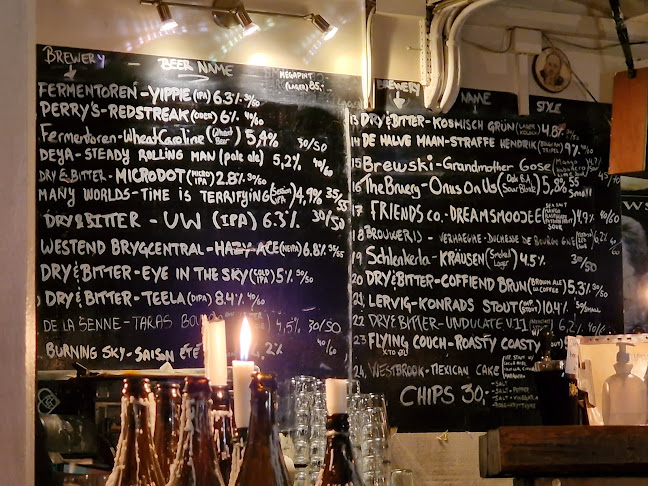 BREWERY BEER NAME
MEGAPINT
(LAGER) 85,-
FERMENTOREN - YIPPIE (IPA) 6.3% 30/60
PERRY'S - REDSTREAK (CIDER) 6% 40/60
Fermentoren - Wheat Caroline (Wheat Beer) 5,4% 30/50
DEYA - STEADY ROLLING MAN (pale ale) 5,2% 40/60
DRY & BITTER - MICRODOT (MICRO IPA) 2.8% 30/50
MANY WORLDS - TIME IS TERRIFYING (Session IPA) 4,9% 35/55
DRY & BITTER - UW (IPA) 6.3% 30/50
WESTEND BRYGCENTRAL - HAZY ACE (NEIPA) 6.8% 35/55
DRY & BITTER - EYE IN THE SKY (COLD IPA) 5% 30/50
DRY & BITTER - TEELA (DIPA) 8.4% 40/60
DE LA SENNE - TARAS 4,5% 30/50
BURNING SKY - SAISON ÉTÉ 40/60
BREWERY NAME STYLE
13 DRY & BITTER - KOSMISCH GRÜN (LAGER) 4.8%
DE HALVE MAAN - STRAFFE HENDRIK (BELGIAN TRIPEL) 9%
15 Brewski - Grandmother Gose 4.7%
16 The Bruery - Onus On Us (Oak B.A Sour Blonde) 5,8% 55 small
17 FRIENDS CO. - DREAMSMOOJEE 4,9% 40/60
18 BROUWERIJ - VERHAEGHE - DUCHESSE DE BOURGOGNE 6,2%
19 Schlenkerla - KRÄUSEN (Smoked Lager) 4.5% 30/50
20 DRY & BITTER - COFFIEND BRUN (BROWN ALE w COFFEE) 5.3% 30/50
21 LERVIG - KONRADS STOUT (IMP STOUT) 10.4% SMALL
22 DRY & BITTER - UNDULATE V.11 6.2% 40/60
23 FLYING COUCH - ROASTY COASTY
X TO ØL
24 WESTBROOK - MEXICAN CAKE
CHIPS 30,-
- SALT
- SALT + PEPPER
- SALT + VINEGAR